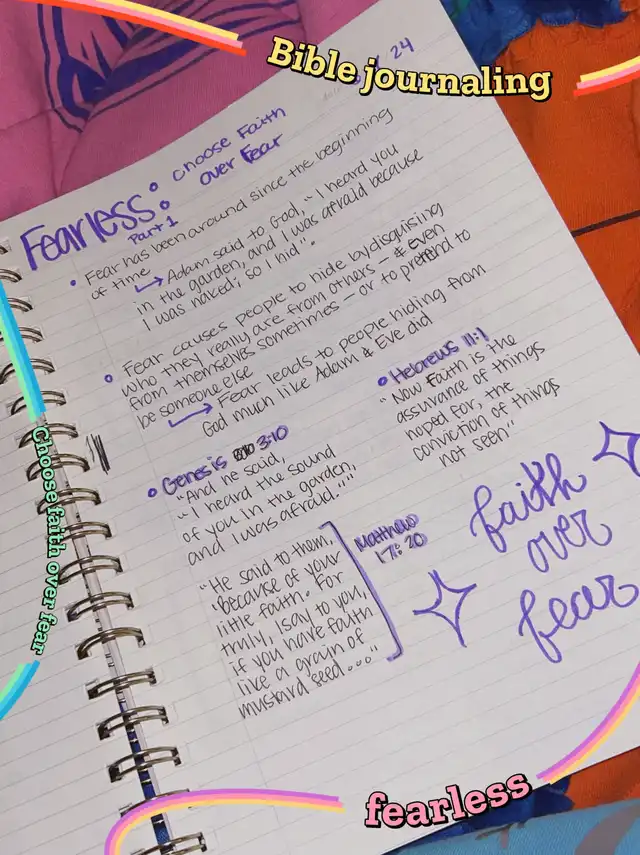 Bible journaling
24
Fearless: choose Faith
over Fear
Part 1
• Fear has been around since the beginning
of time
↳ Adam said to God, "I heard you
in the garden, and I was afraid because
I was naked; so I hid".
• Fear causes people to hide by disguising
who they really are from others - & even
from themselves sometimes - or to pretend to
be someone else
↳ Fear leads to people hiding from
God much like Adam & Eve did
• Genesis 3:10
"And he said,
"I heard the sound
of you in the garden,
and I was afraid.""
• Hebrews 11:1
"Now Faith is the
assurance of things
hoped for, the
conviction of things
not seen"
"He said to them,
'Because of your
little faith. For
truly, I say to you,
if you have faith
like a grain of
mustard seed..."
Matthew
17:20
faith
over
fear
Choose faith over fear
fearless